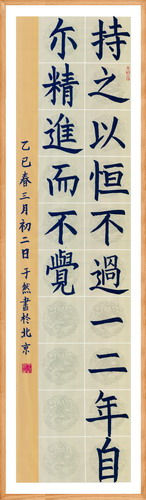 持之以恒不過一二年自
尓精進而不覺
乙巳春三月初二日于然書於北京